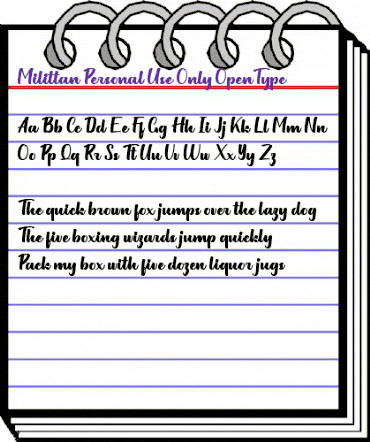 Milittan Personal Use Only OpenType
Aa Bb Cc Dd Ee Ff Gg Hh Ii Jj Kk Ll Mm Nn
Oo Pp Qq Rr Ss Tt Uu Vv Ww Xx Yy Zz
The quick brown fox jumps over the lazy dog
The five boxing wizards jump quickly
Pack my box with five dozen liquor jugs